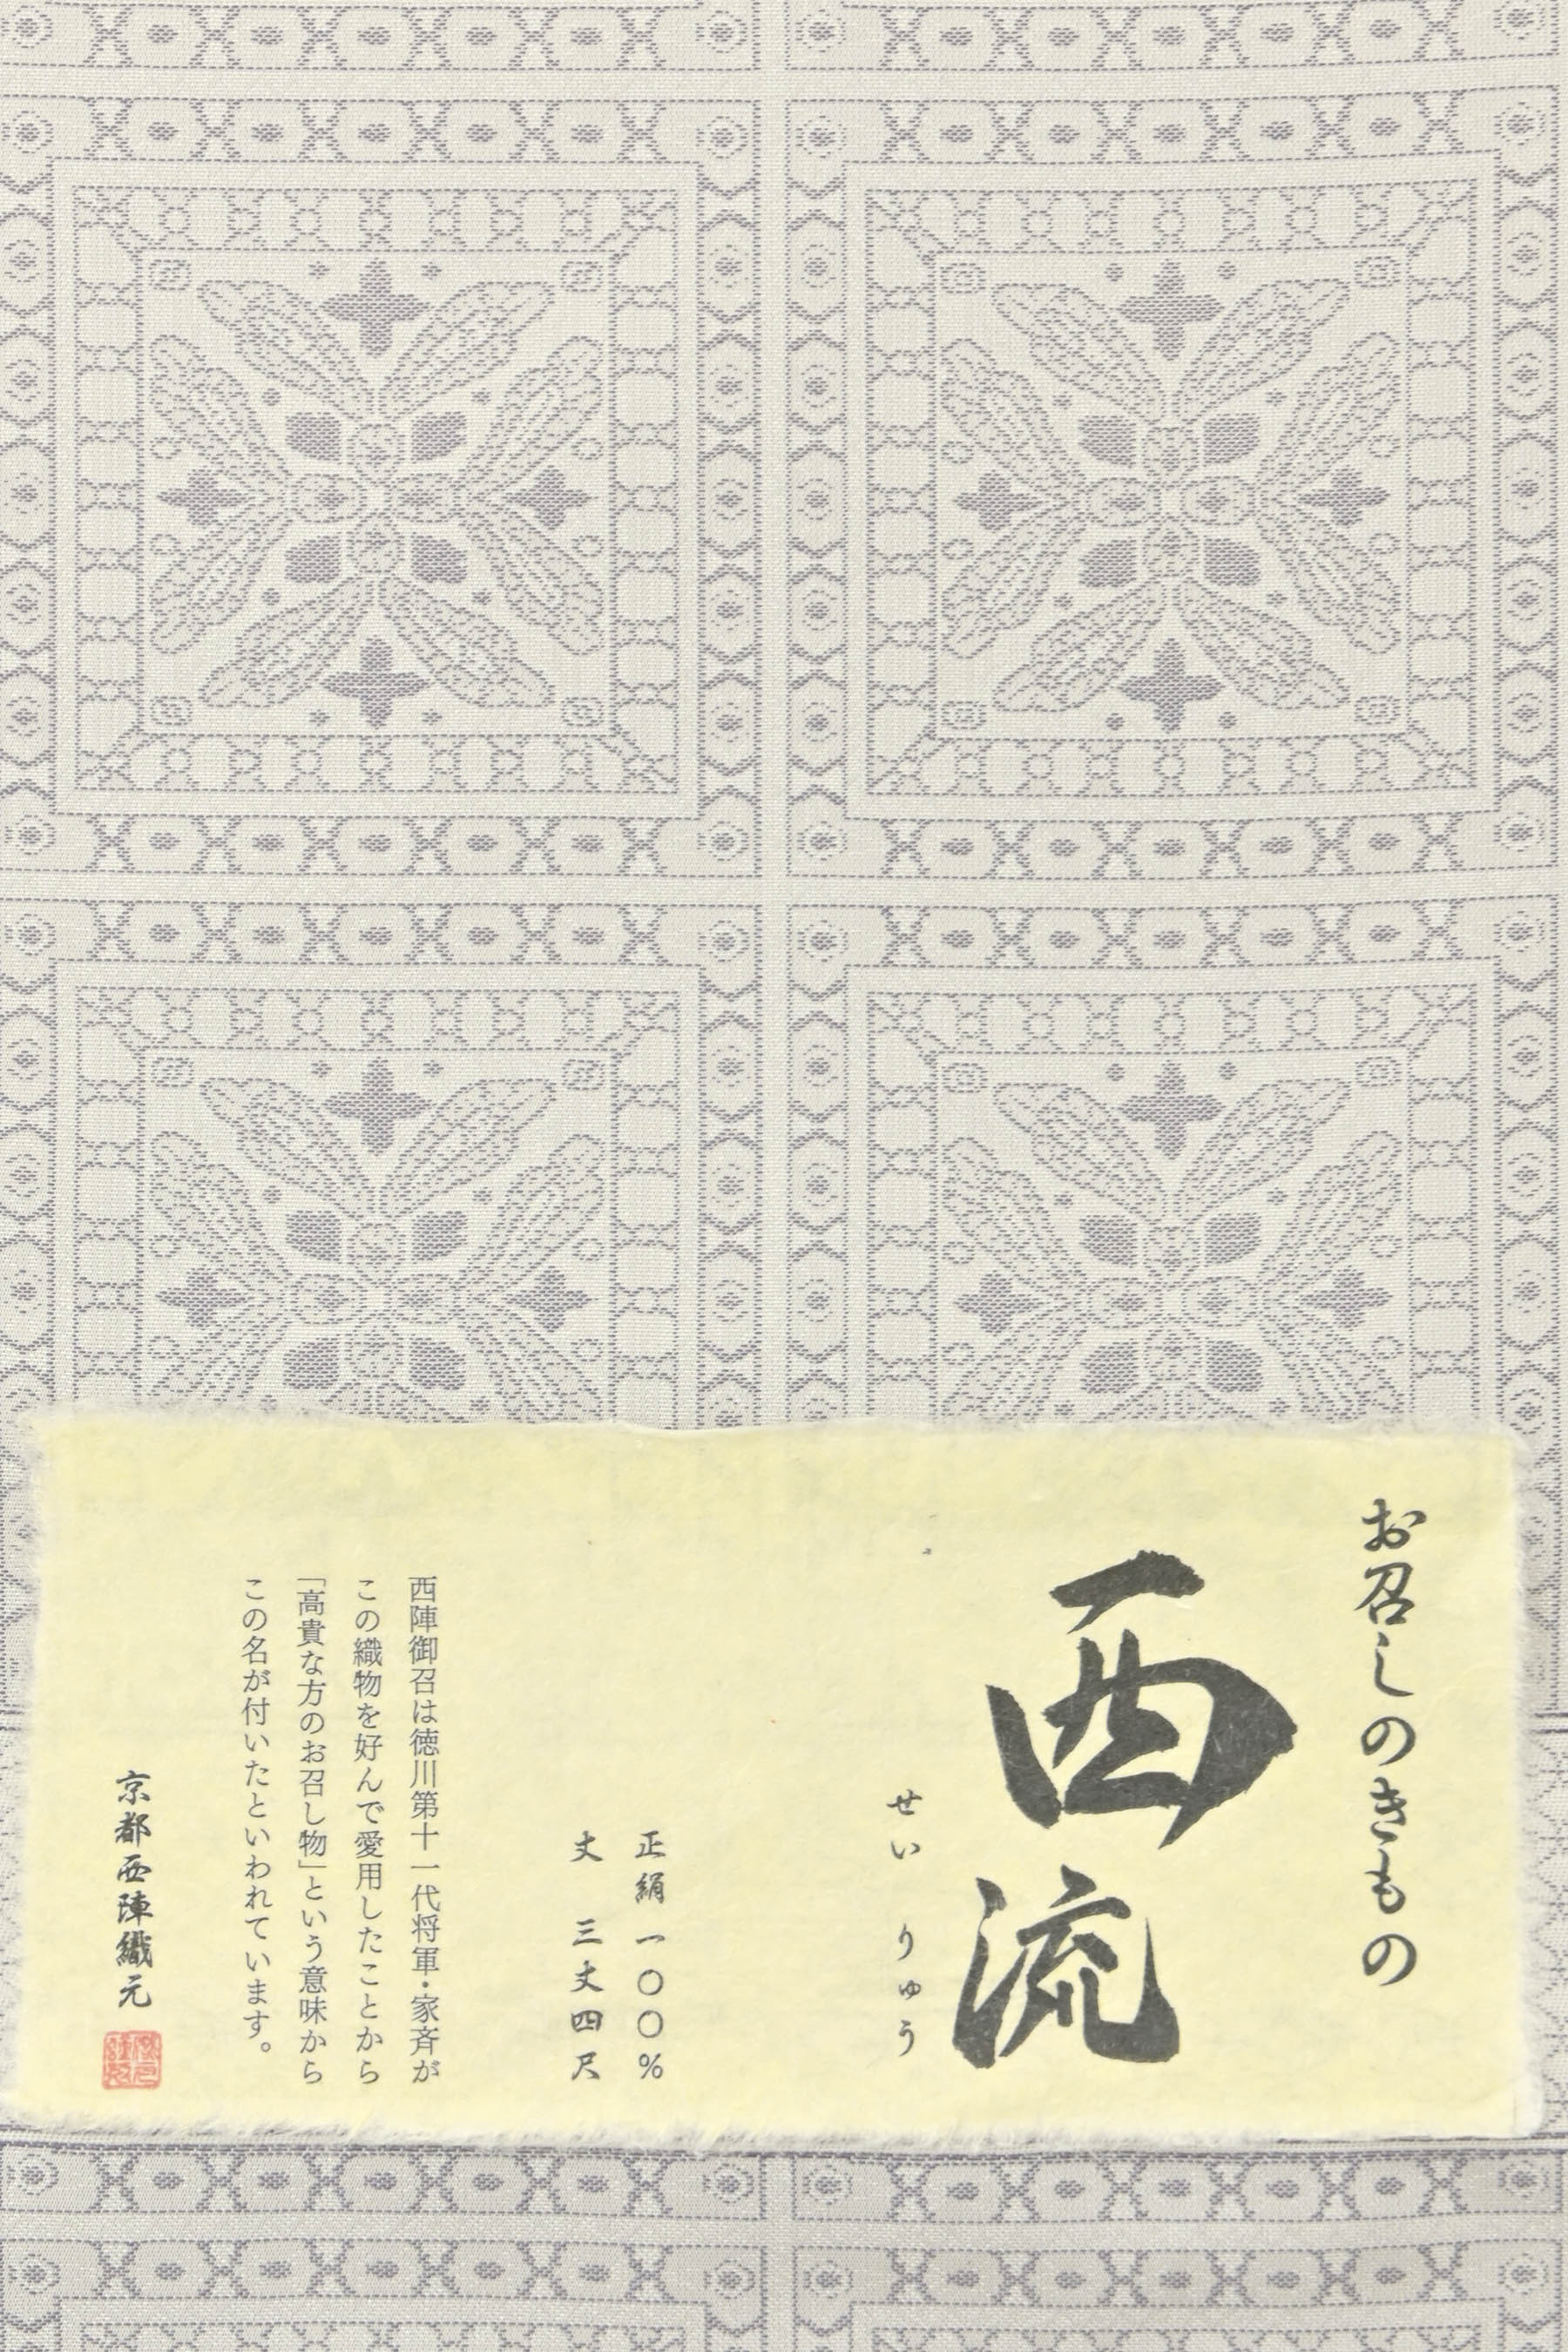 お召しのきもの
西流
せいりゅう
正絹一〇〇%
丈 三丈四尺
西陣御召は徳川第十一代将軍・家斉が
この織物を好んで愛用したことから
「高貴な方のお召し物」という意味から
この名が付いたといわれています。
京都西陣織元